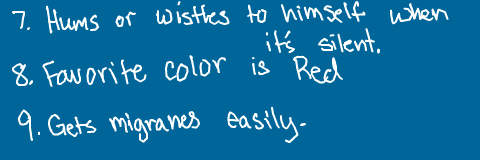 7. Hums or wistles to himself when
it's silent.
8. Favorite color is Red
9. Gets migranes easily.